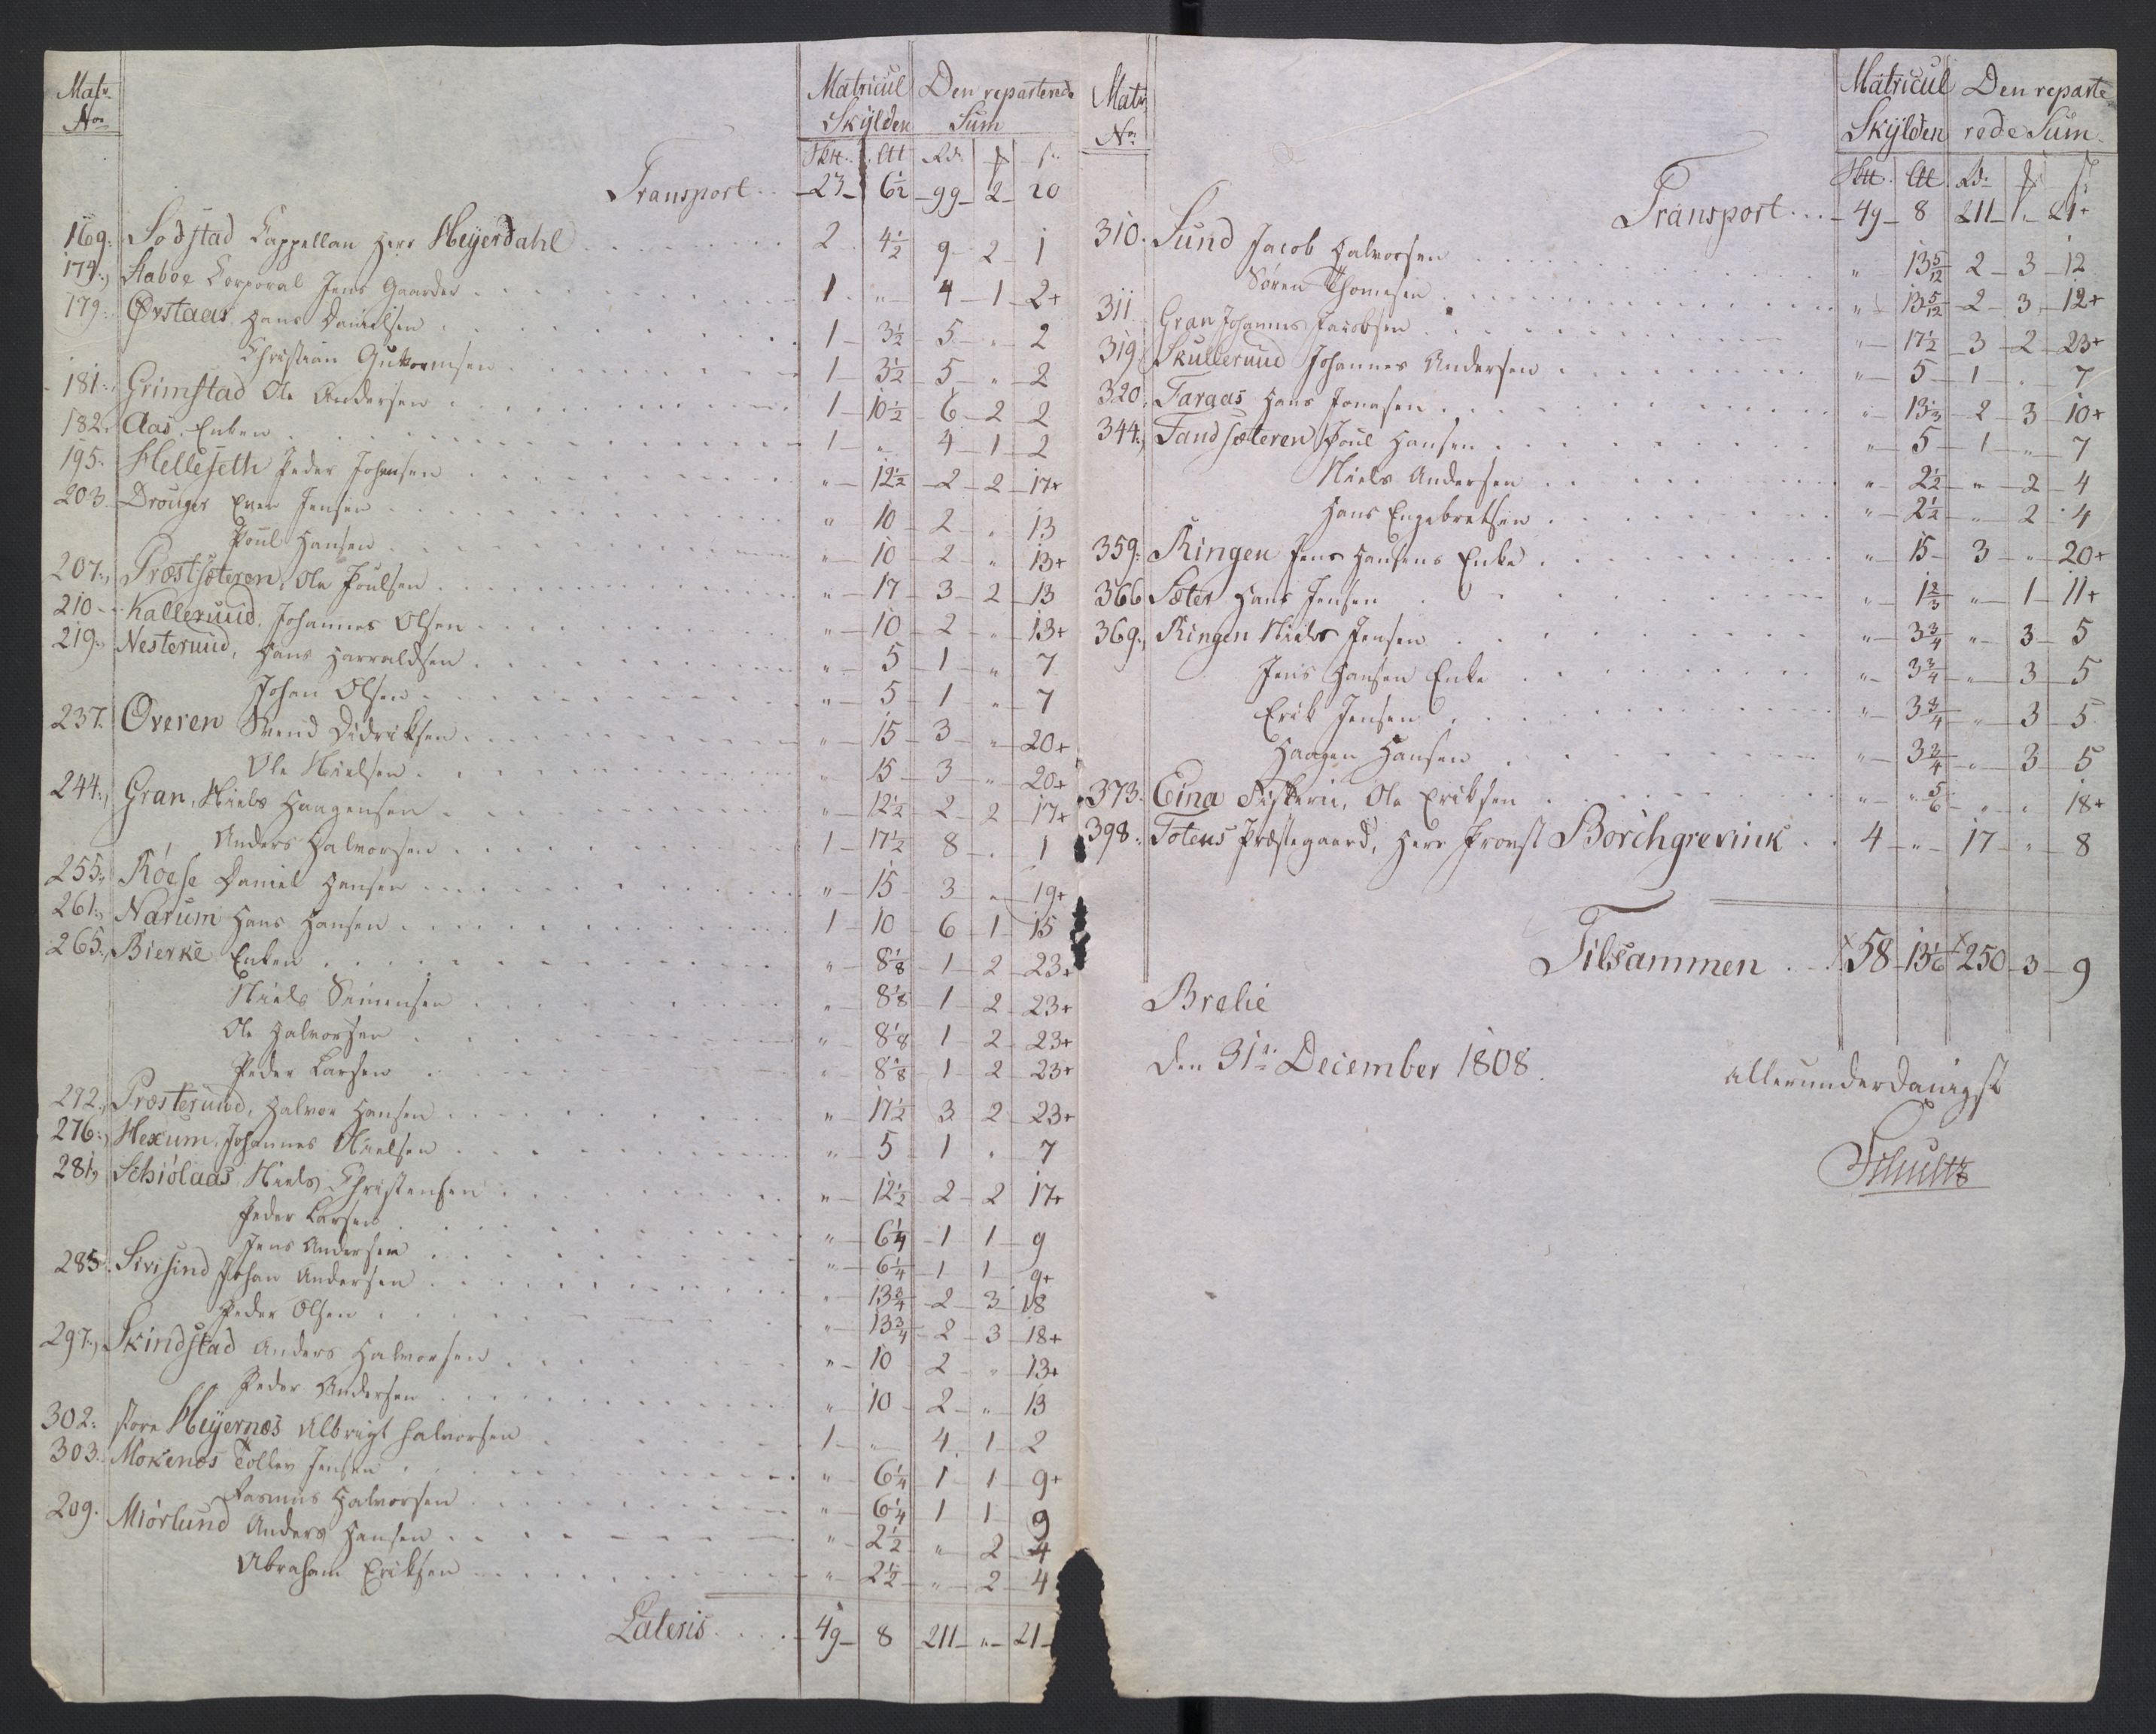 Matr. No. | Matricul Skÿlden | Den reparterede Sum
Sk℔. | ℔ | Rd. | ℔ | s.
Transport . . 23 – 6½ – 99 – 2 – 20
169. Sodstad Cappellan Herr Heÿerdahl . . . 2 4½ 9 – 2 – 1
174. Staboe Corporal Jens Gaarder . . . 1 " 4 – 1 – 2+
179. Ørstaas Hans Danielsen . . . 1 – 3½ – 5 – " – 2
Christian Guttormsen . . . 1 – 3½ – 5 – " – 2
181. Grimstad Ole Andersen . . . 1 – 10½ – 6 – 2 – 2
182. Aas. Enken . . . 1 – " – 4 – 1 – 2
195. Helleseth Peder Johnsen . . . " – 12½ – 2 – 2 – 17+
203. Drouger Even Jensen . . . " – 10 – 2 – " 13
Poul Hansen . . . " – 10 – 2 – " – 13+
207. Præstsæteren, Ole Poulsen . . . " – 17 – 3 – 2 – 13
210 Kalleruud. Johannes Olsen . . . " – 10 – 2 – " – 13+
219. Nesteruud, Hans Harraldsen . . . " – 5 – 1 – " 7
Johan Olsen . . . " – 5 – 1 – " – 7
237. Øveren Svend Didriksen . . . " – 15 – 3 – " – 20+
Ole Nielsen . . . " 15 – 3 – " – 20+
244. Gran, Niels Haagensen . . . " – 12½ – 2 – 2 – 17+
Anders Halvorsen . . . 1 – 17½ 8 – . – 1
255. Røese Daniel Hansen . . . " – 15 – 3 – " – 19+
261. Narum Hans Hansen . . . 1 – 10 – 6 – 1 – 15
265. Bierke Enken . . . " – 8⅛ – 1 – 2 – 23+
Niels Simensen . . . " – 8⅛ – 1 – 2 – 23+
Ole Halvorsen . . . " – 8⅛ 1 – 2 – 23+
Peder Larsen . . . " – 8⅛ – 1 – 2 – 23+
272. Præsteruud, Halvor Hansen . . . " – 17½ 3 – 2 – 23+
276. Hexum, Johannes Nielsen . . . " – 5 – 1 . 7
281. Schiølaas Niels Christensen . . . " – 12½ – 2 – 2 17+
Peder Larsen . . . " – 6¼ – 1 – 1 – 9
Jens Andersen . . . " – 6¼ – 1 1 – 9+
285. Sivisind Johan Andersen . . . " – 13¾ – 2 – 3 – 18
Peder Olsen . . . " – 13¾ – 2 – 3 – 18+
297. Skindstad Anders Halvorsen . . . " – 10 2 – " – 13+
Peder Andersen . . . " – 10 – 2 – " – 13
302. store Heÿernæs Albrigt Halvorsen . . . 1 – " – 4 1 – 2
303. Mokenes Tollev Jensen . . . " – 6¼ – 1 – 1 – 9+
Rasmus Halvorsen . . . " – 6¼ – 1 1 – 9
209. Miørlund Anders Hansen . . . " – 2½ – " – 2 – 4
Abraham Eriksen . . . " – 2½ – " – 2 – 4
Lateris . . . 49 – 8 – 211 – " – 21
Matr. No. | Matricul Skÿlden | Den reparterede Sum.
Sk℔. | ℔ | Rd. | ℔ | s.
Transport . . . 49 – 8 – 211 – " – 21+
310. Sund Jacob Halvorsen . . . " – 13 5/12 – 2 – 3 – 12
Søren Thomesen . . . " – 13 5/12 – 2 – 3 – 12+
311. Gran Johannes Jacobsen . . . " – 17½ – 3 – 2 – 23+
319. Skulleruud Johannes Andersen . . . " – 5 – 1 – . – 7
320. Faraas Hans Jonasen . . . " – 13⅓ – 2 – 3 – 10+
344. Fandsæteren Poul Hansen . . . " – 5 – 1 – " – 7
Niels Andersen . . . " – 2½ – " – 2 – 4
Hans Engebretsen . . . " – 2½ – " – 2 – 4
359. Ringen Jens Hansens Enke . . . " – 15 – 3 – " – 20+
366 Sæter Hans Jensen . . . " – 1⅔ – " – 1 – 11+
369. Ringen Niels Jensen . . . " – 3¾ – " – 3 – 5
Jens Hansen Enke . . . " – 3¾ – " – 3 – 5
Erik Jensen . . . " – 3¾ – " – 3 – 5
Haagen Hansen . . . " – 3¾ – " – 3 – 5
373. Eina Fiskerie, Ole Eriksen . . . " – " 5/6 – " – " – 18+
398. Totens Præstegaard, Herr Provst Borchgrevink . . 4 – " – 17 – " – 8
Tilsammen . . . 58 – 13 1/6 – 250 – 3 – 9
Brelie
den 31te December 1808.
allerunderdanigst
Schultz